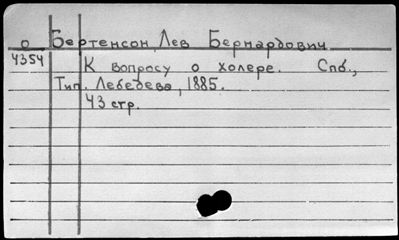 О Бертенсон, Лев Бернардович.
4354 К вопросу о холере. Спб.,
Тип. Лебедева, 1885.
43 стр.